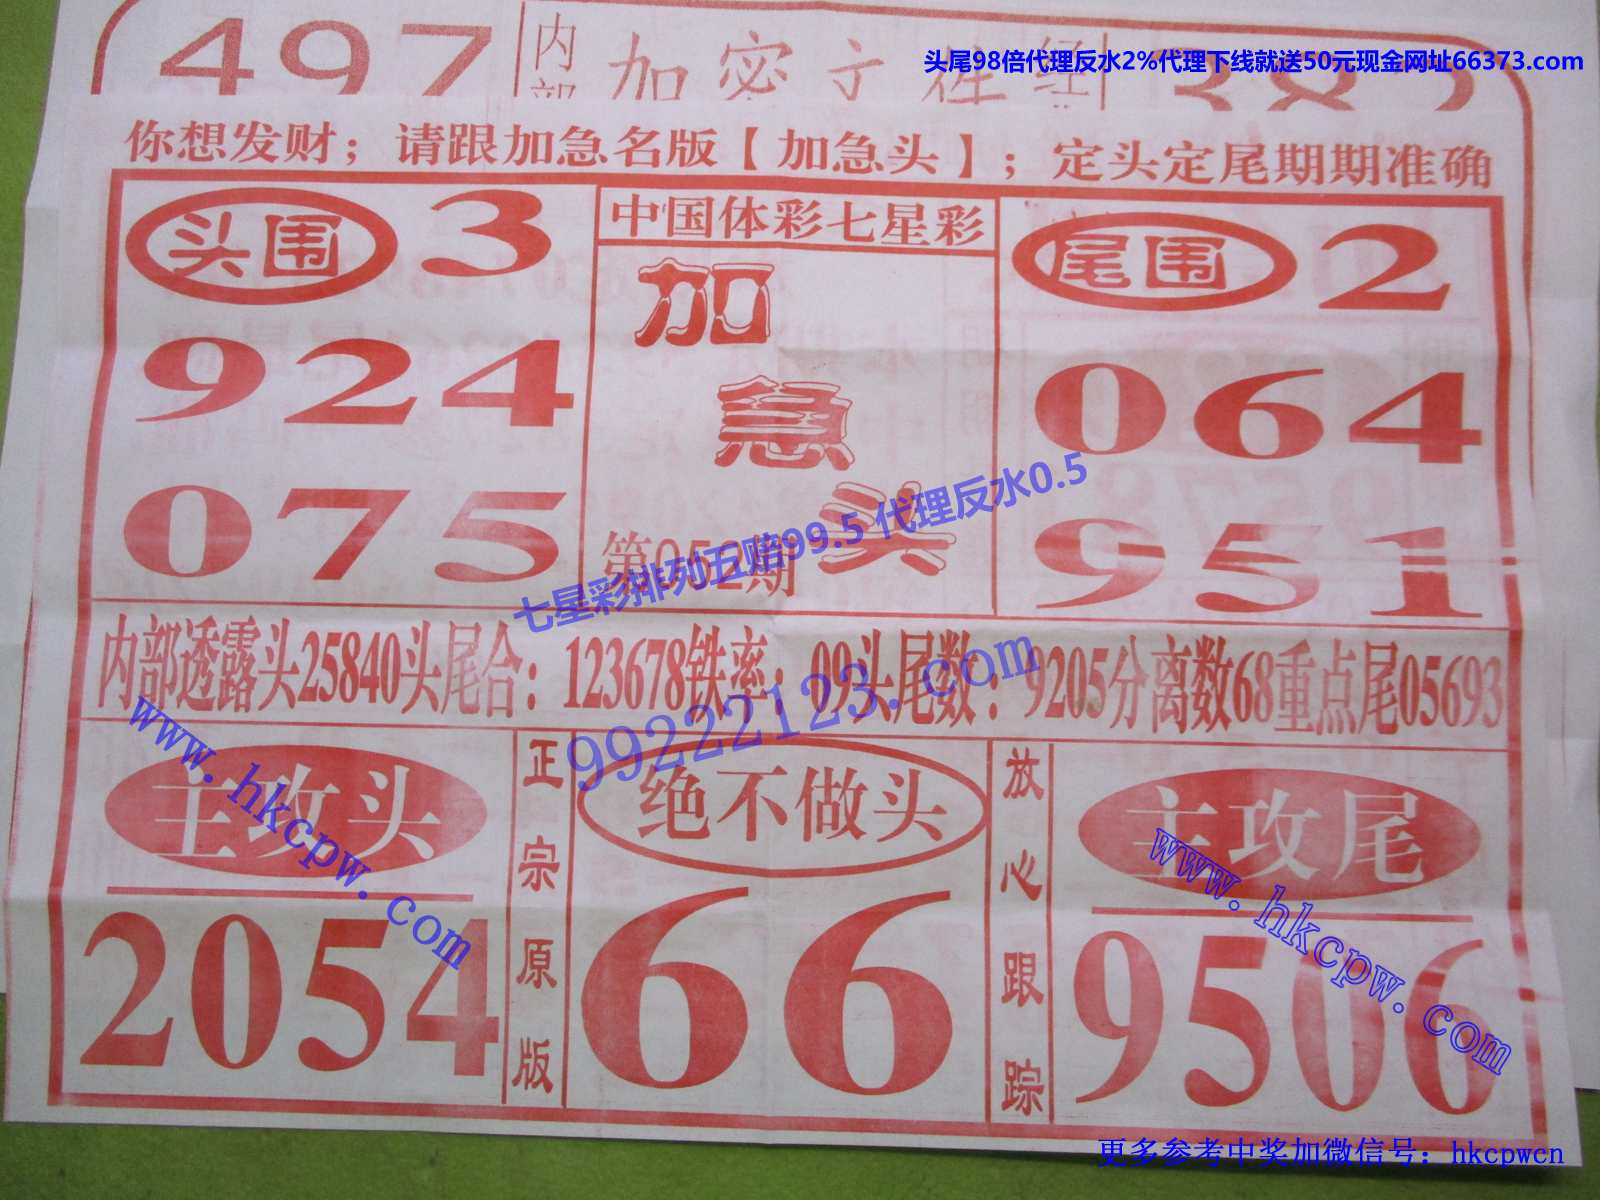 497
内部
加密
头尾98倍代理反水2%代理下线就送50元现金网址66373.com
你想发财；请跟加急名版【加急头】；定头定尾期期准确
头围 3
924
075
中国体彩七星彩
加急头
第052期
尾围 2
064
951
七星彩排列五赔99.5 代理反水0.5
内部透露头25840头尾合：123678铁率：09头尾数：9205分离数68重点尾05693
99222123.com
www.hkcpw.com
主攻头
2054
正宗原版
绝不做头
66
放心跟踪
主攻尾
9506
www.hkcpw.com
更多参考中奖加微信号：hkcpwcn